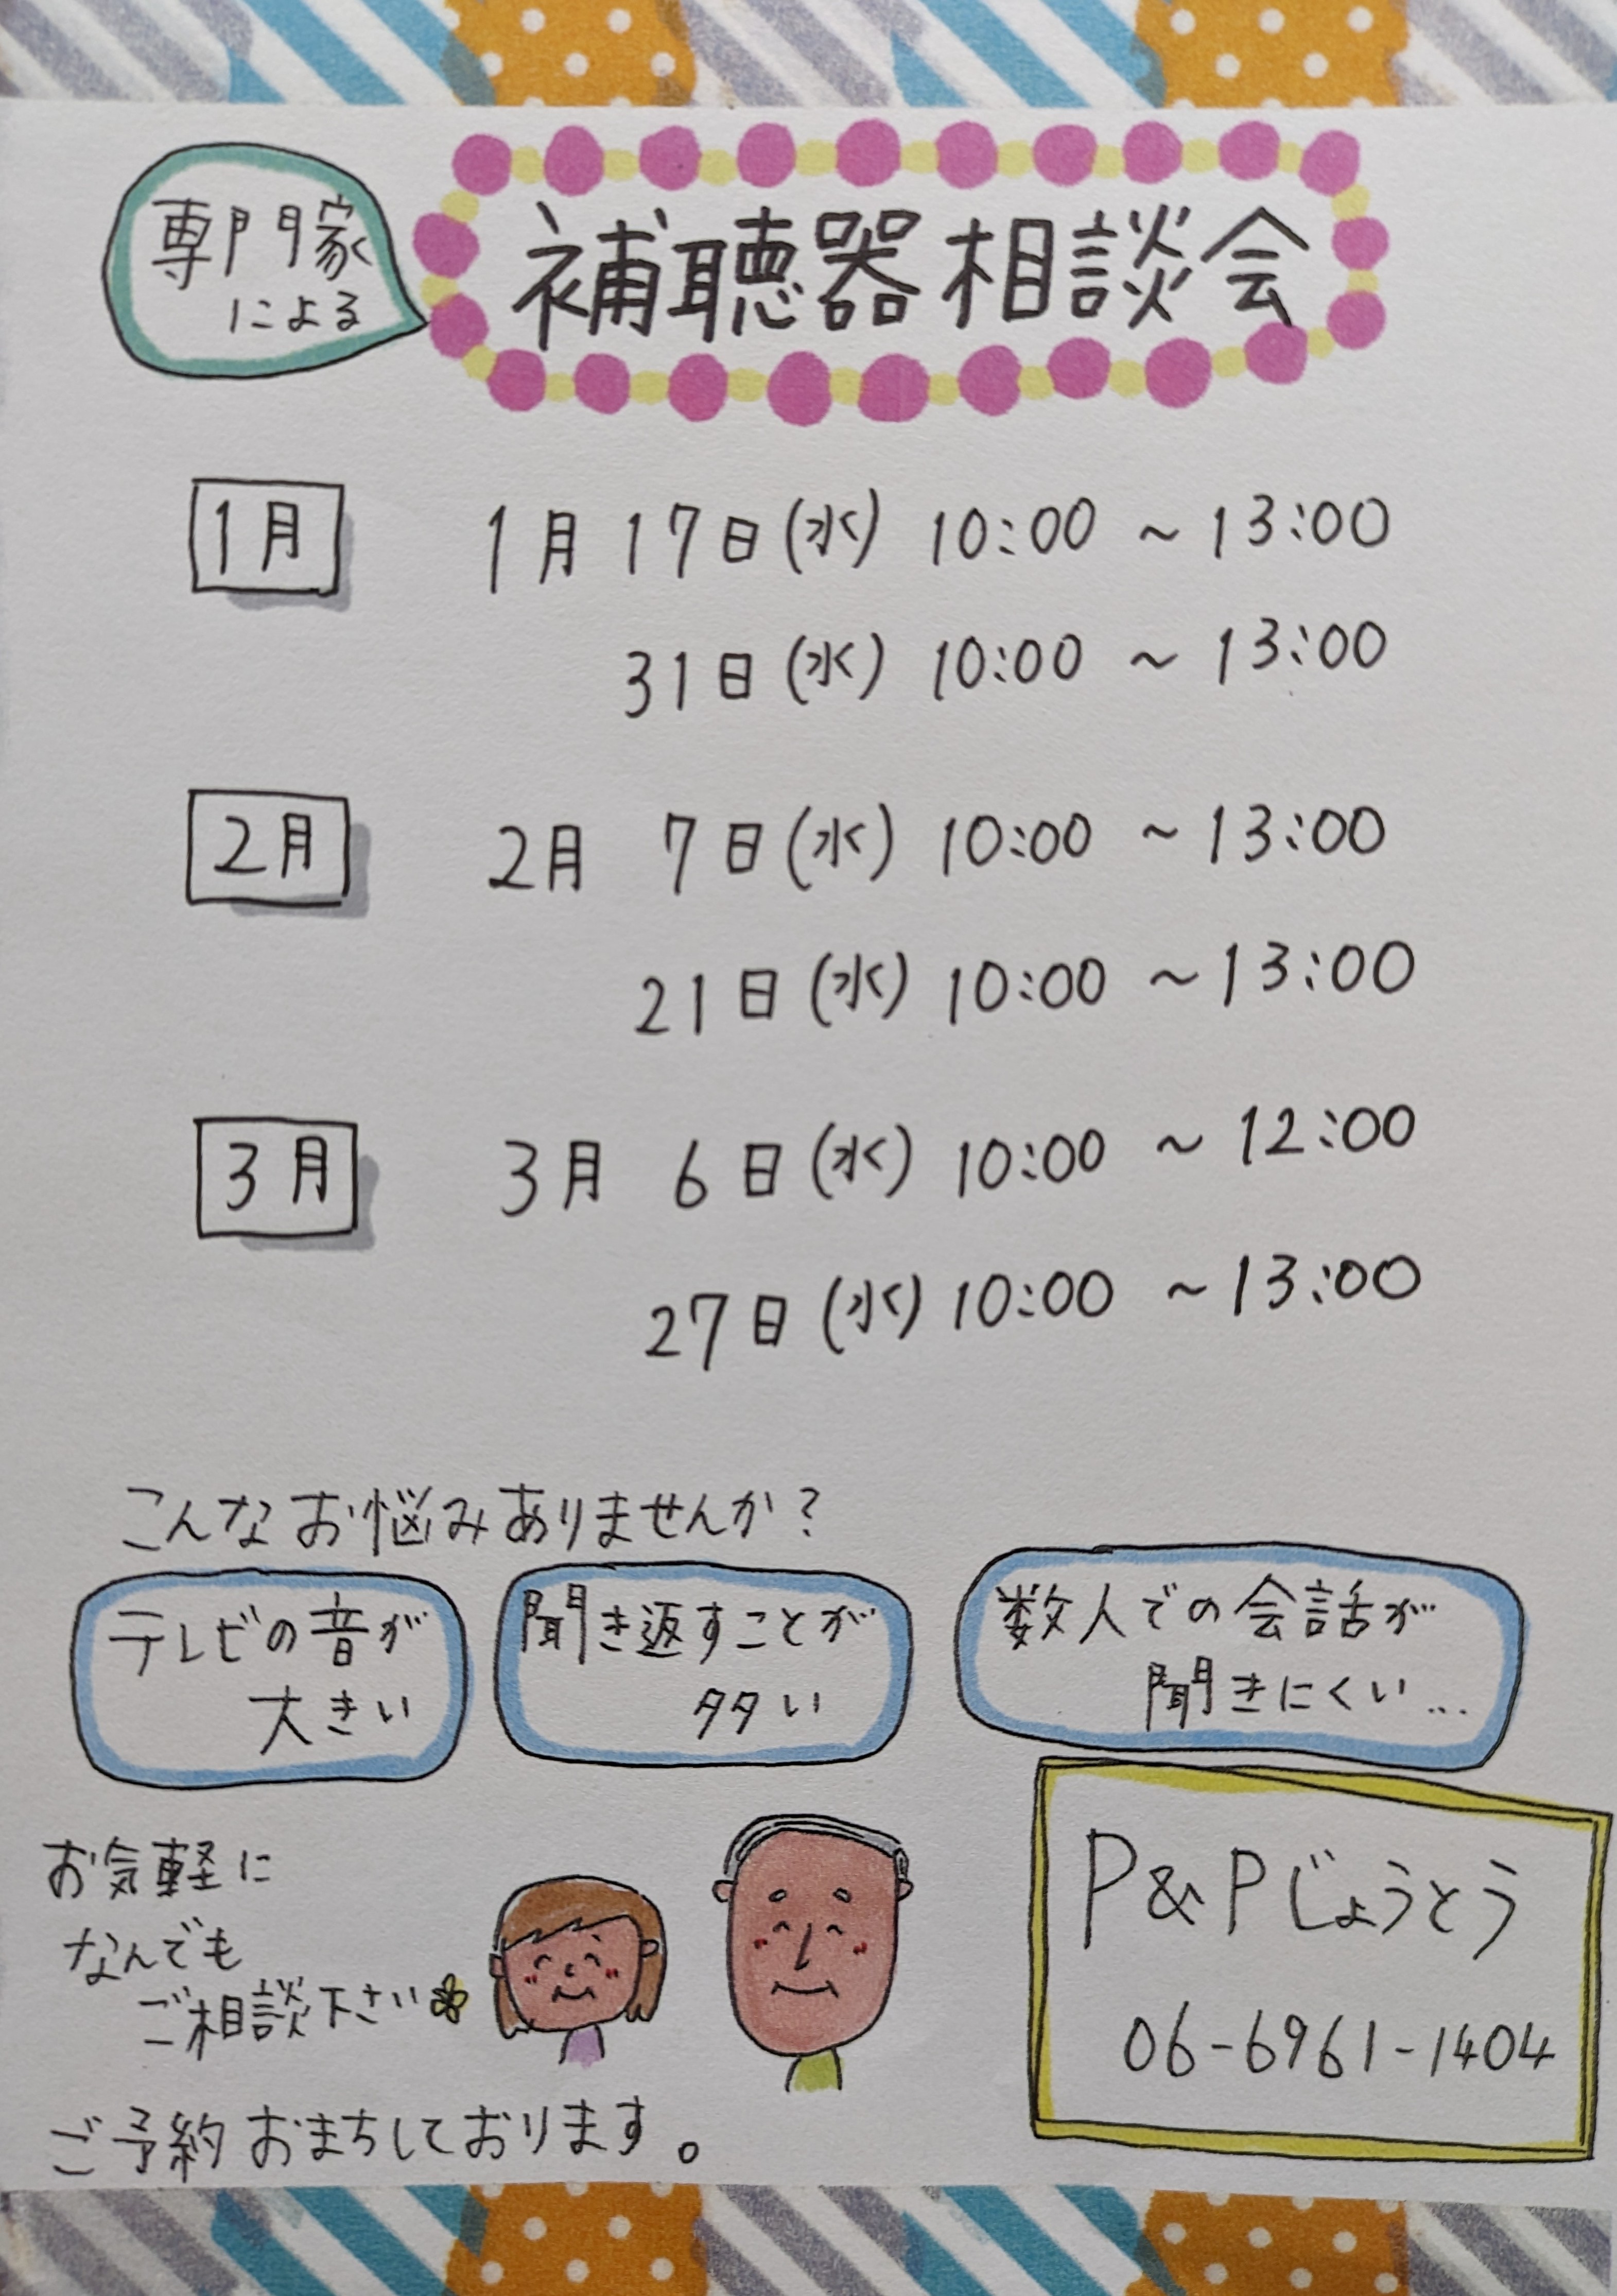 専門家
による
補聴器相談会
1月
1月 17日(水) 10:00 ~ 13:00
31日(水) 10:00 ~ 13:00
2月
2月 7日(水) 10:00 ~ 13:00
21日(水) 10:00 ~ 13:00
3月
3月 6日(水) 10:00 ~ 12:00
27日(水) 10:00 ~ 13:00
こんなお悩みありませんか?
テレビの音が
大きい
聞き返すことが
多い
数人での会話が
聞きにくい...
お気軽に
なんでも
ご相談下さい
P&Pじょうとう
06-6961-1404
ご予約おまちしております。